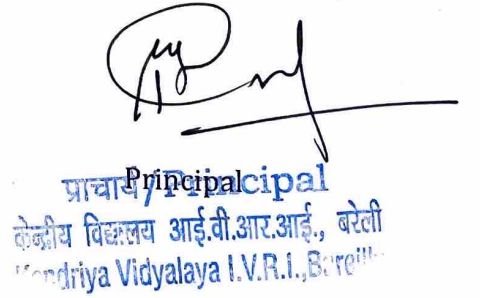 Principal
प्राचार्य/Principal
केन्द्रीय विद्यालय आई.वी.आर.आई., बरेली
Kendriya Vidyalaya I.V.R.I., Bareilly